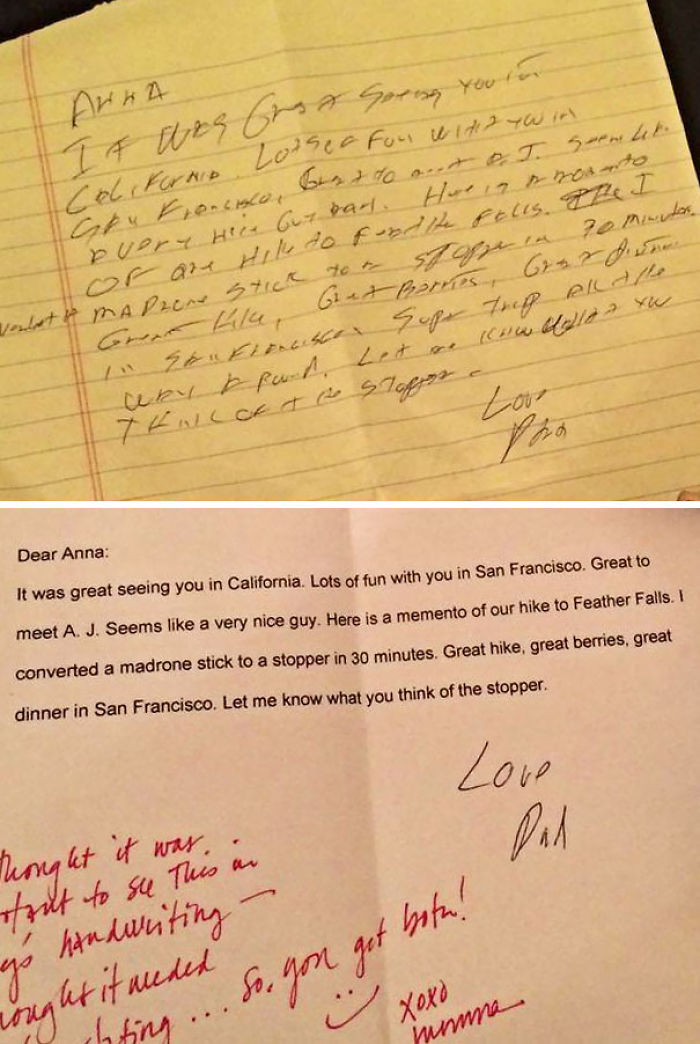 ANNA
It was Great Seeing you in
California. Lots of Fun with you in
San Francisco, Great to meet A. J. Seems like
a very nice Guy. Here is a momento
OF our Hike to Feather Falls. I
madrone stick to a stopper in 30 minutes.
Great hike, Great Berries, Great Dinner
in San Francisco. Super trip all the
way around. Let me know what you
Think of the stopper.
Love
Dad
Dear Anna:
It was great seeing you in California. Lots of fun with you in San Francisco. Great to
meet A. J. Seems like a very nice guy. Here is a memento of our hike to Feather Falls. I
converted a madrone stick to a stopper in 30 minutes. Great hike, great berries, great
dinner in San Francisco. Let me know what you think of the stopper.
Love
Dad
thought it was
to see This in
handwriting —
thought it needed
... So, you get both!
xoxo
momma